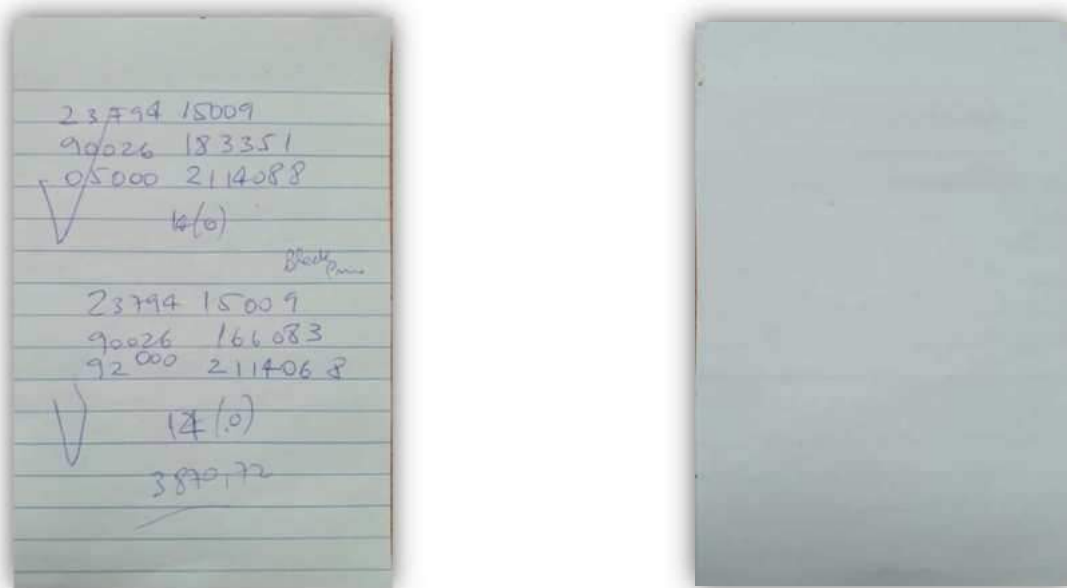 23794 15009
90026 183351
05000 2114088
14(0)
Black
23794 15009
90026 166083
92000 2114068
(.0)
3870,72